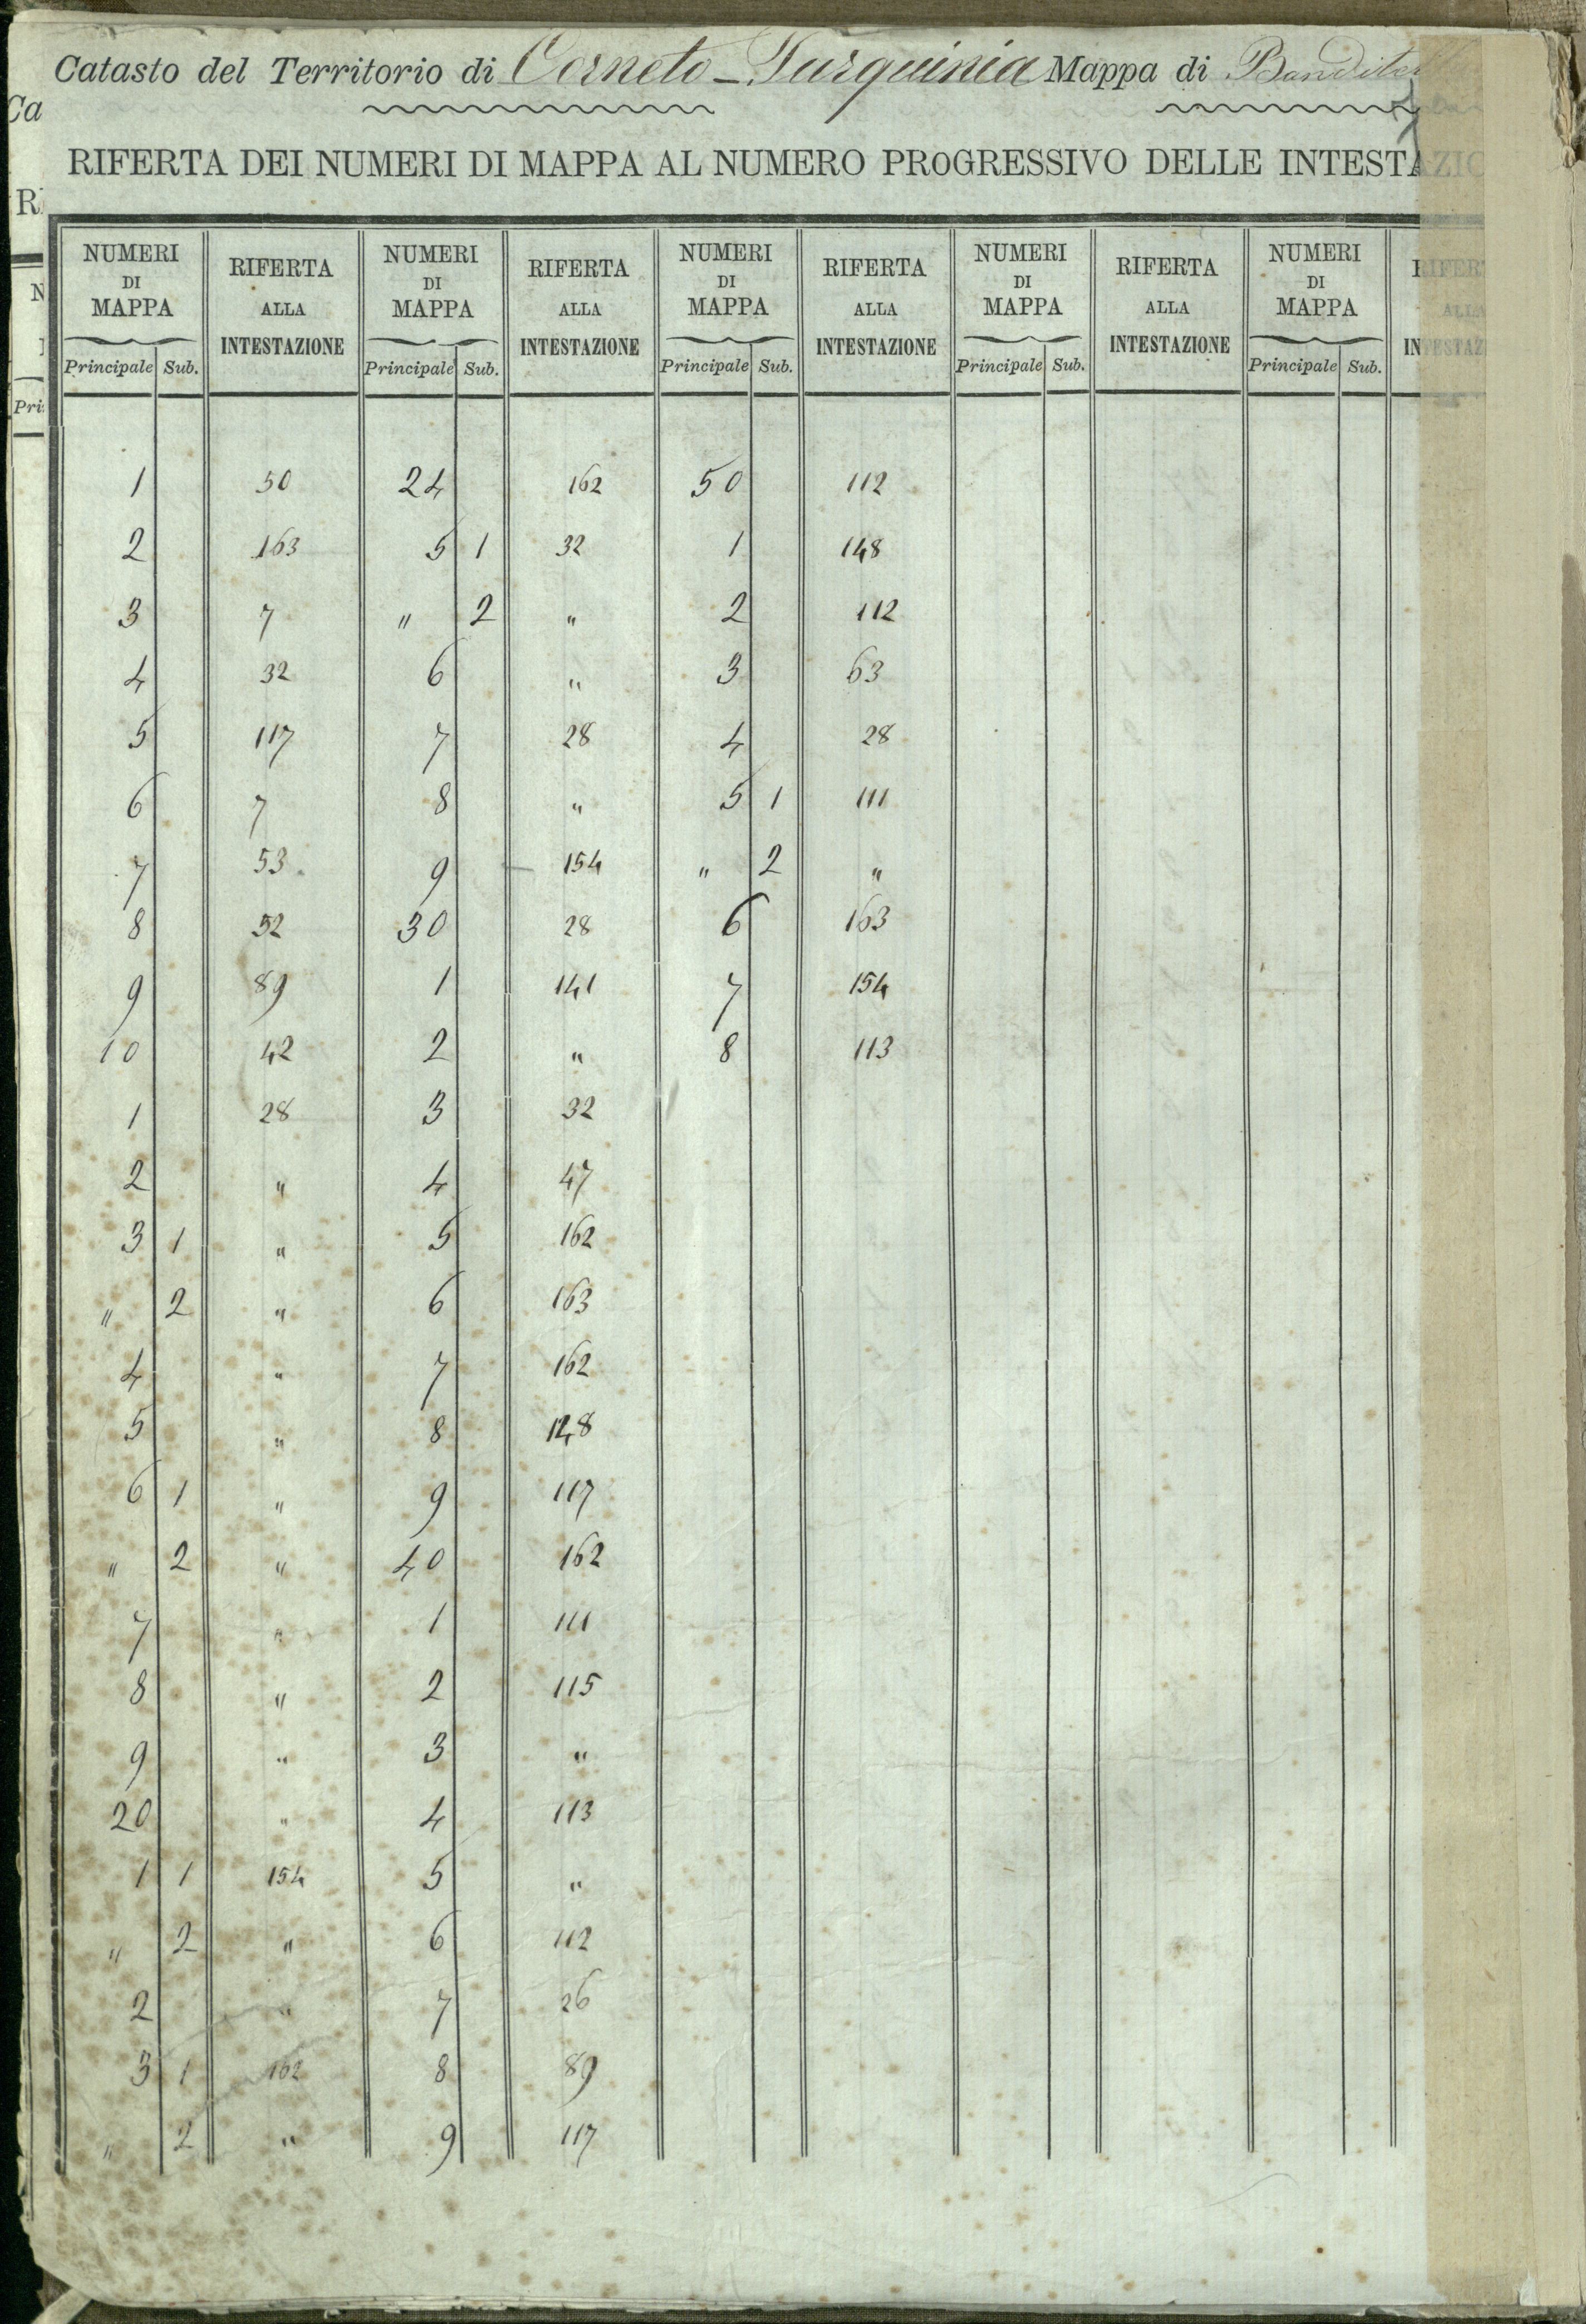 Catasto del Territorio di Corneto-Tarquinia Mappa di
RIFERTA DEI NUMERI DI MAPPA AL NUMERO PROGRESSIVO DELLE INTESTAZIO
NUMERI DI MAPPA RIFERTA ALLA INTESTAZIONE NUMERI DI MAPPA RIFERTA ALLA INTESTAZIONE NUMERI DI MAPPA RIFERTA ALLA INTESTAZIONE NUMERI DI MAPPA RIFERTA ALLA INTESTAZIONE NUMERI DI MAPPA RIFERT ALLA INTESTAZ
Principale Sub. Principale Sub. Principale Sub. Principale Sub. Principale Sub.
1 50 24 162 50 112
2 163 5 1 32 1 148
3 7 " 2 " 2 112
4 32 6 " 3 63
5 117 7 28 4 28
6 7 8 " 5 1 111
7 53 9 154 " 2 "
8 52 30 28 6 163
9 89 1 141 7 154
10 42 2 " 8 113
1 28 3 32
2 " 4 47
3 1 " 5 162
" 2 " 6 163
4 " 7 162
5 " 8 148
6 1 " 9 117
" 2 " 40 162
7 " 1 111
8 " 2 115
9 " 3 "
20 " 4 113
1 1 154 5 "
" 2 " 6 112
2 " 7 26
3 1 162 8 89
" 2 " 9 117